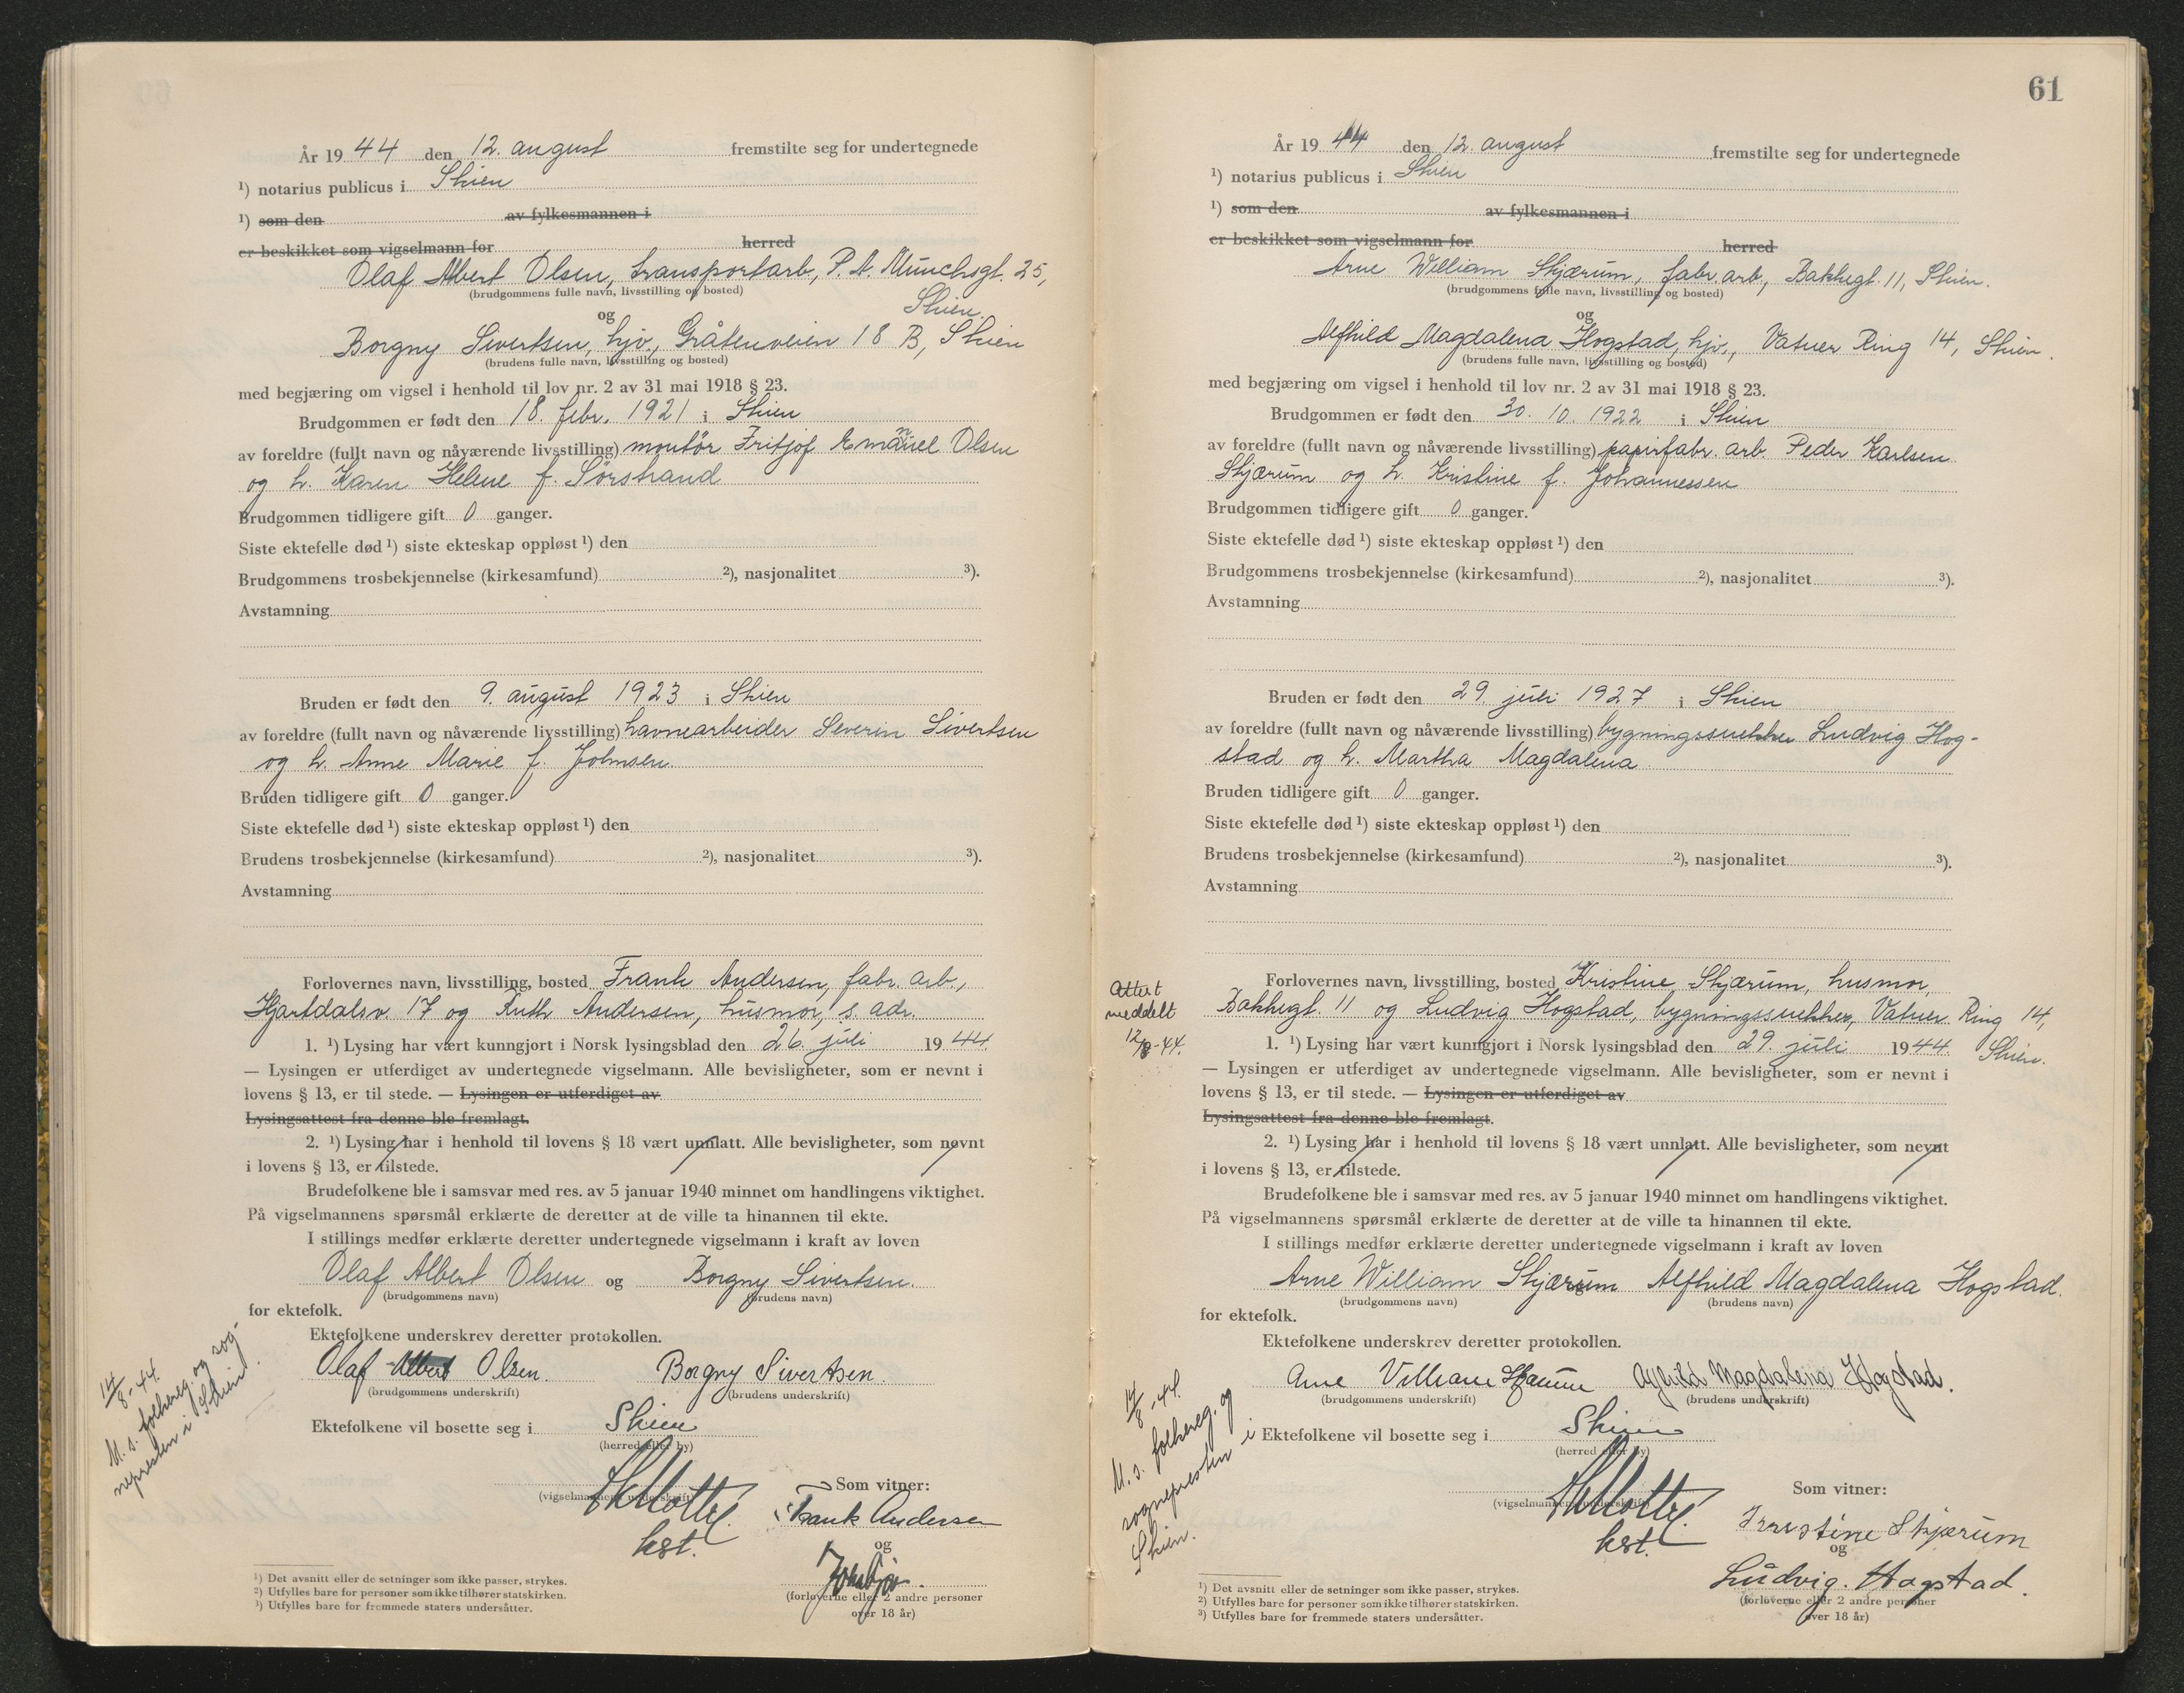 År 19 44 den 12. august fremstilte seg for undertegnede
¹) notarius publicus i Skien
¹) som den av fylkesmannen i
er beskikket som vigselmann for herred
Olaf Albert Olsen, transportarb, P. A. Munchsgt. 25,
(brudgommens fulle navn, livsstilling og bosted)
Skien.
og
Borgny Sivertsen, hjv., Gråtenveien 18 B, Skien
(brudens fulle navn, livsstilling og bosted)
med begjæring om vigsel i henhold til lov nr. 2 av 31 mai 1918 § 23.
Brudgommen er født den 18. febr. 1921 i Skien
av foreldre (fullt navn og nåværende livsstilling) montör Fritjof Emanuel Olsen
og h. Karen Helene f. Sörstrand
Brudgommen tidligere gift 0 ganger.
Siste ektefelle død ¹) siste ekteskap oppløst ¹) den
Brudgommens trosbekjennelse (kirkesamfund) ²), nasjonalitet ³).
Avstamning
Bruden er født den 9. august 1923 i Skien
av foreldre (fullt navn og nåværende livsstilling) havnearbeider Severin Sivertsen
og h. Anne Marie f. Johnsen.
Bruden tidligere gift 0 ganger.
Siste ektefelle død ¹) siste ekteskap oppløst ¹) den
Brudens trosbekjennelse (kirkesamfund) ²), nasjonalitet ³).
Avstamning
Forlovernes navn, livsstilling, bosted Frank Andersen, fabr. arb.,
Hjartdalsv. 17 og Ruth Andersen, husmor, s. adr.
1. ¹) Lysing har vært kunngjort i Norsk lysingsblad den 26. juli 19 44.
— Lysingen er utferdiget av undertegnede vigselmann. Alle bevisligheter, som er nevnt i
lovens § 13, er til stede. — Lysingen er utferdiget av
Lysingsattest fra denne ble fremlagt.
2. ¹) Lysing har i henhold til lovens § 18 vært unnlatt. Alle bevisligheter, som nevnt
i lovens § 13, er tilstede.
Brudefolkene ble i samsvar med res. av 5 januar 1940 minnet om handlingens viktighet.
På vigselmannens spørsmål erklærte de deretter at de ville ta hinannen til ekte.
I stillings medfør erklærte deretter undertegnede vigselmann i kraft av loven
Olaf Albert Olsen og Borgny Sivertsen.
(brudgommens navn) (brudens navn)
for ektefolk.
Ektefolkene underskrev deretter protokollen.
Olaf Albert Olsen. Borgny Sivertsen.
(brudgommens underskrift) (brudens underskrift)
Ektefolkene vil bosette seg i Skien
(herred eller by)
14/8-44.
M. s. folkereg. og sog-
nepresten i Skien.
(vigselmannens underskrift)
kst.
Som vitner:
Frank Andersen
og
(forloverne eller 2 andre personer
over 18 år)
¹) Det avsnitt eller de setninger som ikke passer, strykes.
²) Utfylles bare for personer som ikke tilhører statskirken.
³) Utfylles bare for fremmede staters undersåtter.
61
År 19 44 den 12. august fremstilte seg for undertegnede
¹) notarius publicus i Skien
¹) som den av fylkesmannen i
er beskikket som vigselmann for herred
Arne William Skjærum, fabr. arb, Bakkegt. 11, Skien.
(brudgommens fulle navn, livsstilling og bosted)
og
Alfhild Magdalena Hogstad, hjv., Vatner Ring 14, Skien.
(brudens fulle navn, livsstilling og bosted)
med begjæring om vigsel i henhold til lov nr. 2 av 31 mai 1918 § 23.
Brudgommen er født den 30. 10. 1922 i Skien
av foreldre (fullt navn og nåværende livsstilling) papirfabr. arb. Peder Karlsen
Skjærum og h. Kristine f. Johannessen
Brudgommen tidligere gift 0 ganger.
Siste ektefelle død ¹) siste ekteskap oppløst ¹) den
Brudgommens trosbekjennelse (kirkesamfund) ²), nasjonalitet ³).
Avstamning
Bruden er født den 29. juli 1927 i Skien
av foreldre (fullt navn og nåværende livsstilling) bygningssnekker Ludvig Hog-
stad og h. Martha Magdalena
Bruden tidligere gift 0 ganger.
Siste ektefelle død ¹) siste ekteskap oppløst ¹) den
Brudens trosbekjennelse (kirkesamfund) ²), nasjonalitet ³).
Avstamning
Forlovernes navn, livsstilling, bosted Kristine Skjærum, husmor,
Bakkegt. 11 og Ludvig Hogstad, bygningssnekker, Vatner Ring 14,
Skien.
Attest
meddelt
12/8-44.
1. ¹) Lysing har vært kunngjort i Norsk lysingsblad den 29. juli 19 44.
— Lysingen er utferdiget av undertegnede vigselmann. Alle bevisligheter, som er nevnt i
lovens § 13, er til stede. — Lysingen er utferdiget av
Lysingsattest fra denne ble fremlagt.
2. ¹) Lysing har i henhold til lovens § 18 vært unnlatt. Alle bevisligheter, som nevnt
i lovens § 13, er tilstede.
Brudefolkene ble i samsvar med res. av 5 januar 1940 minnet om handlingens viktighet.
På vigselmannens spørsmål erklærte de deretter at de ville ta hinannen til ekte.
I stillings medfør erklærte deretter undertegnede vigselmann i kraft av loven
Arne William Skjærum Alfhild Magdalena Hogstad.
(brudgommens navn) (brudens navn)
for ektefolk.
Ektefolkene underskrev deretter protokollen.
Arne William Skjærum Alfhild Magdalena Hogstad.
(brudgommens underskrift) (brudens underskrift)
Ektefolkene vil bosette seg i Skien
(herred eller by)
14/8-44.
M. s. folkereg. og
sognepresten i
Skien.
(vigselmannens underskrift)
kst.
Som vitner:
Kristine Skjærum
og
Ludvig. Hogstad.
(forloverne eller 2 andre personer
over 18 år)
¹) Det avsnitt eller de setninger som ikke passer, strykes.
²) Utfylles bare for personer som ikke tilhører statskirken.
³) Utfylles bare for fremmede staters undersåtter.